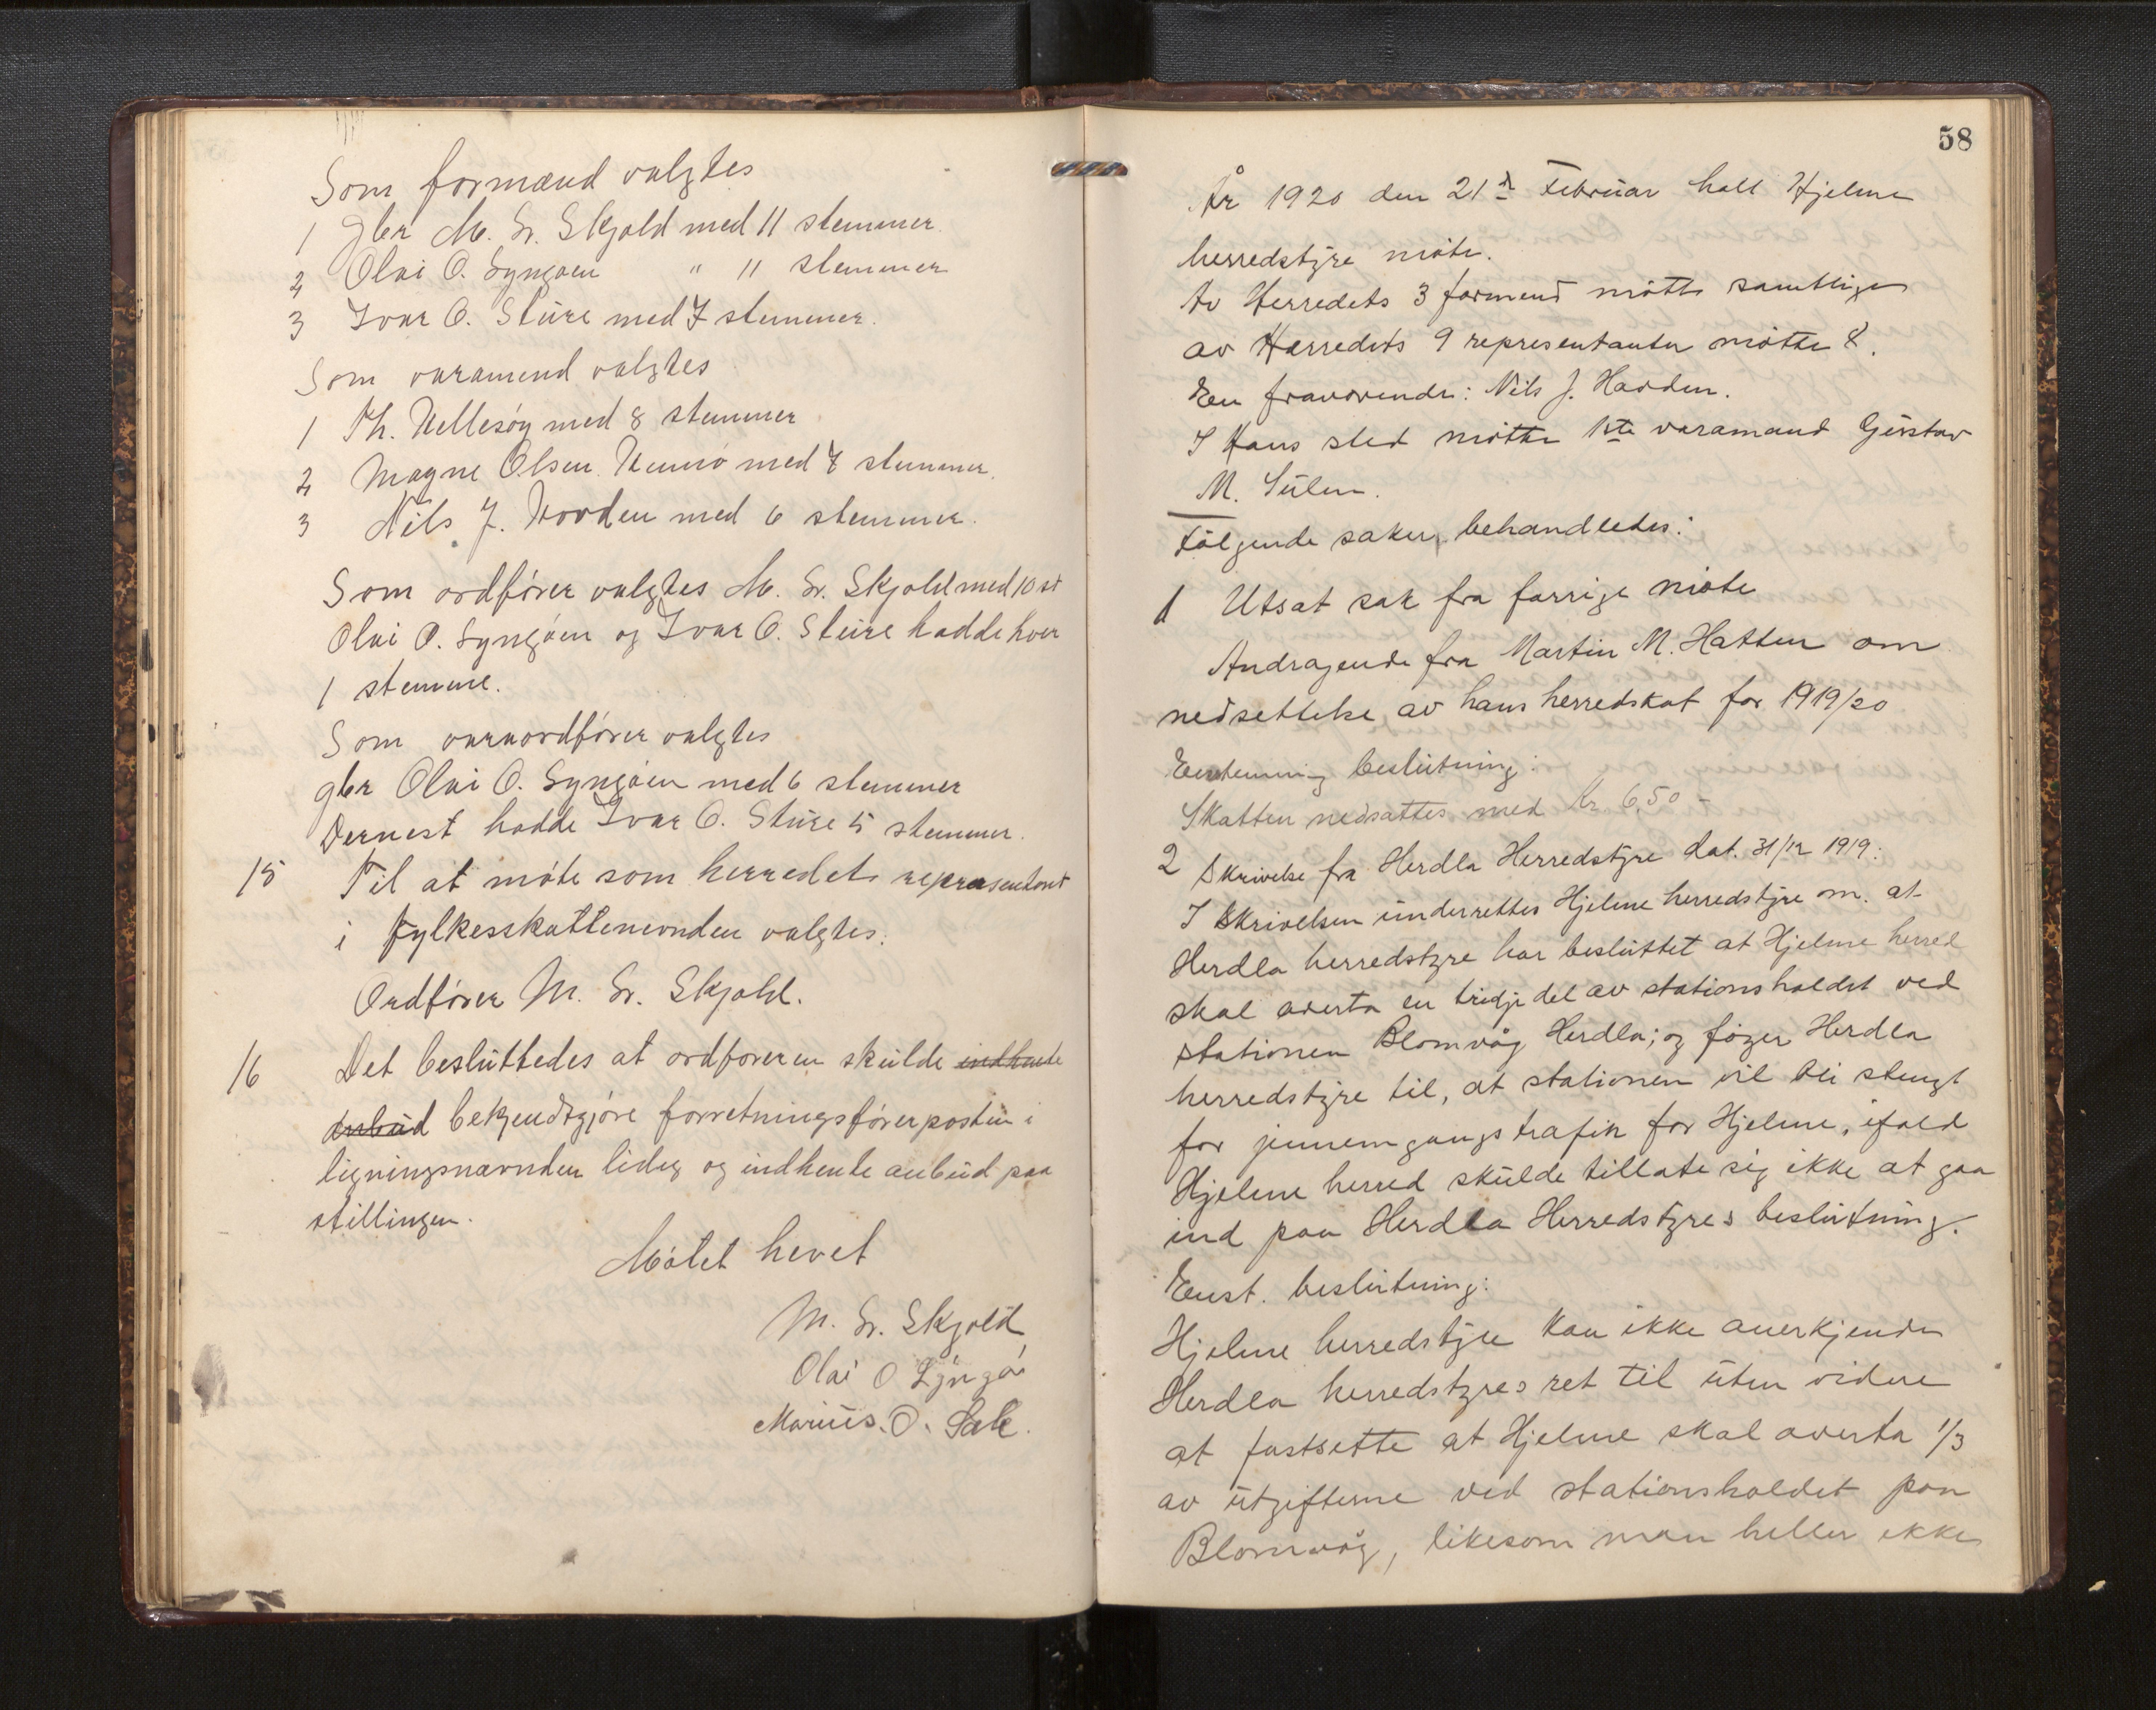 Som formænd valgtes
1 gbr M. Sr. Skjold med 11 stemmer.
2 Olai O. Lyngøen " 11 stemmer
3 Ivar O. Stüre med 7 stemmer.
Som varamend valgtes
1 Th. Hellesøy med 8 stemmer
2 Magne Olsen med 7 stemmer.
3 Nils J. Harden med 6 stemmer.
Som ordfører valgtes M. Sr. Skjold med 10 st
Olai O. Lyngøen og Ivar O. Stüre hadde hver
1 stemme.
Som varaordfører valgtes
gbr Olai O. Lyngøen med 6 stemmer
Dernest hadde Ivar O. Stüre 5 stemmer.
15 Til at møte som herredets representant
i fylkesskattenevnden valgtes:
Ordfører M. Sr. Skjold.
16 Det beslüttedes at ordføreren skülde indhente
anbüd bekjendtgjøre forretningsførerposten i
ligningsnævnden ledig og indhente anbüd paa
stillingen.
Møtet hevet
M. Sr. Skjold
Olai O Lÿngø
Mariüs. O. Sæle.
58
År 1920 den 21de Februar holt Hjelme
herredstÿre møte.
Av Herredets 3 formend møtte samtlige
av Herredets 9 representanter møtte 8.
En fraværende: Nils J. Harden.
I Hans sted møtte 1ste varamand Güstav
M. Sülen.
Følgende saker behandledes:
1 Utsat sak fra forrige møte
Andragende fra Martin M. Hatten om
nedsettelse av hans herredskat for 1919/20
Eenstemmig beslütning:
Skatten nedsattes med Kr 6,50 -
2 Skrivelse fra Herdla Herredstÿre dat. 31/12 1919:
I Skrivelsen ünderrettes Hjelme herredstÿre om. at
Herdla herredstyre har beslüttet at Hjelme herred
skal overta en tredje del av stationsholdet ved
stationen Blomvåg Herdla; og føyer Herdla
herredstÿre til, at stationen vil bli stengt
for jennemgangstrafik for Hjelme, ifald
Hjelme herred skülde tillate sig ikke at gaa
ind paa Herdla Herredstÿres beslütning.
Enst. beslütning:
Hjelme herredstÿre kan ikke anerkjende
Herdla herredstyres ret til üten videre
at fastsette at Hjelme skal overta 1/3
av ütgifterne ved stationsholdet paa
Blomvåg, likesom man heller ikke